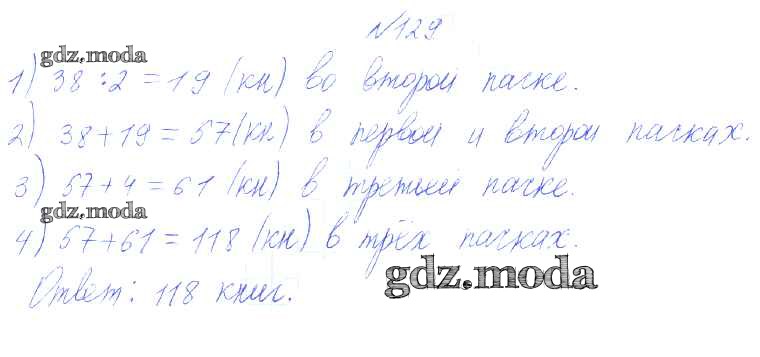 №129
gdz.moda
1) 38 : 2 = 19 (кн) во второй пачке.
2) 38 + 19 = 57 (кн) в первой и второй пачках.
3) 57 + 4 = 61 (кн) в третьей пачке.
gdz.moda
4) 57 + 61 = 118 (кн) в трёх пачках.
gdz.moda
Ответ: 118 книг.